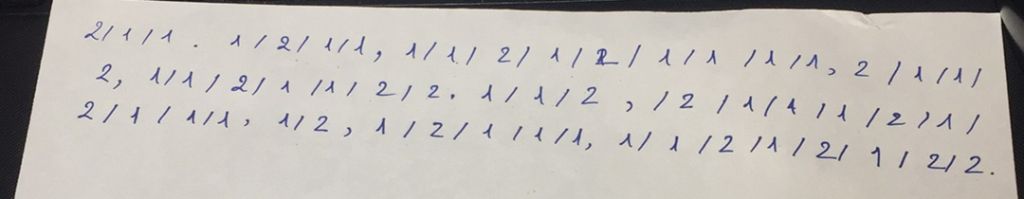 2/1/1. 1/2/1/1, 1/1/2/1/2/1/1/1/1, 2/1/1/
2, 1/1/2/1/1/2/2. 1/1/2, /2/1/1/1/2/1/
2/1/1/1, 1/2, 1/2/1/1/1, 1/1/2/1/2/1/2/2.